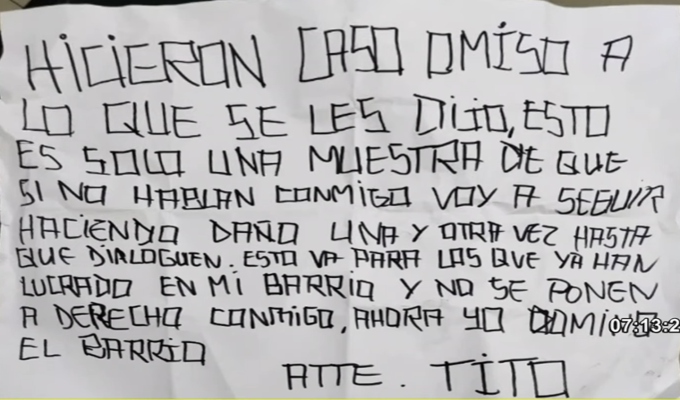 HICIERON CASO OMISO A
LO QUE SE LES DIJO, ESTO
ES SOLO UNA MUESTRA DE QUE
SI NO HABLAN CONMIGO VOY A SEGUIR
HACIENDO DAÑO UNA Y OTRA VEZ HASTA
QUE DIALOGUEN. ESTO VA PARA LOS QUE YA HAN
LUCRADO EN MI BARRIO Y NO SE PONEN
A DERECHO CONMIGO, AHORA YO DOMINO
EL BARRIO
ATTE. TITO
07:13:2